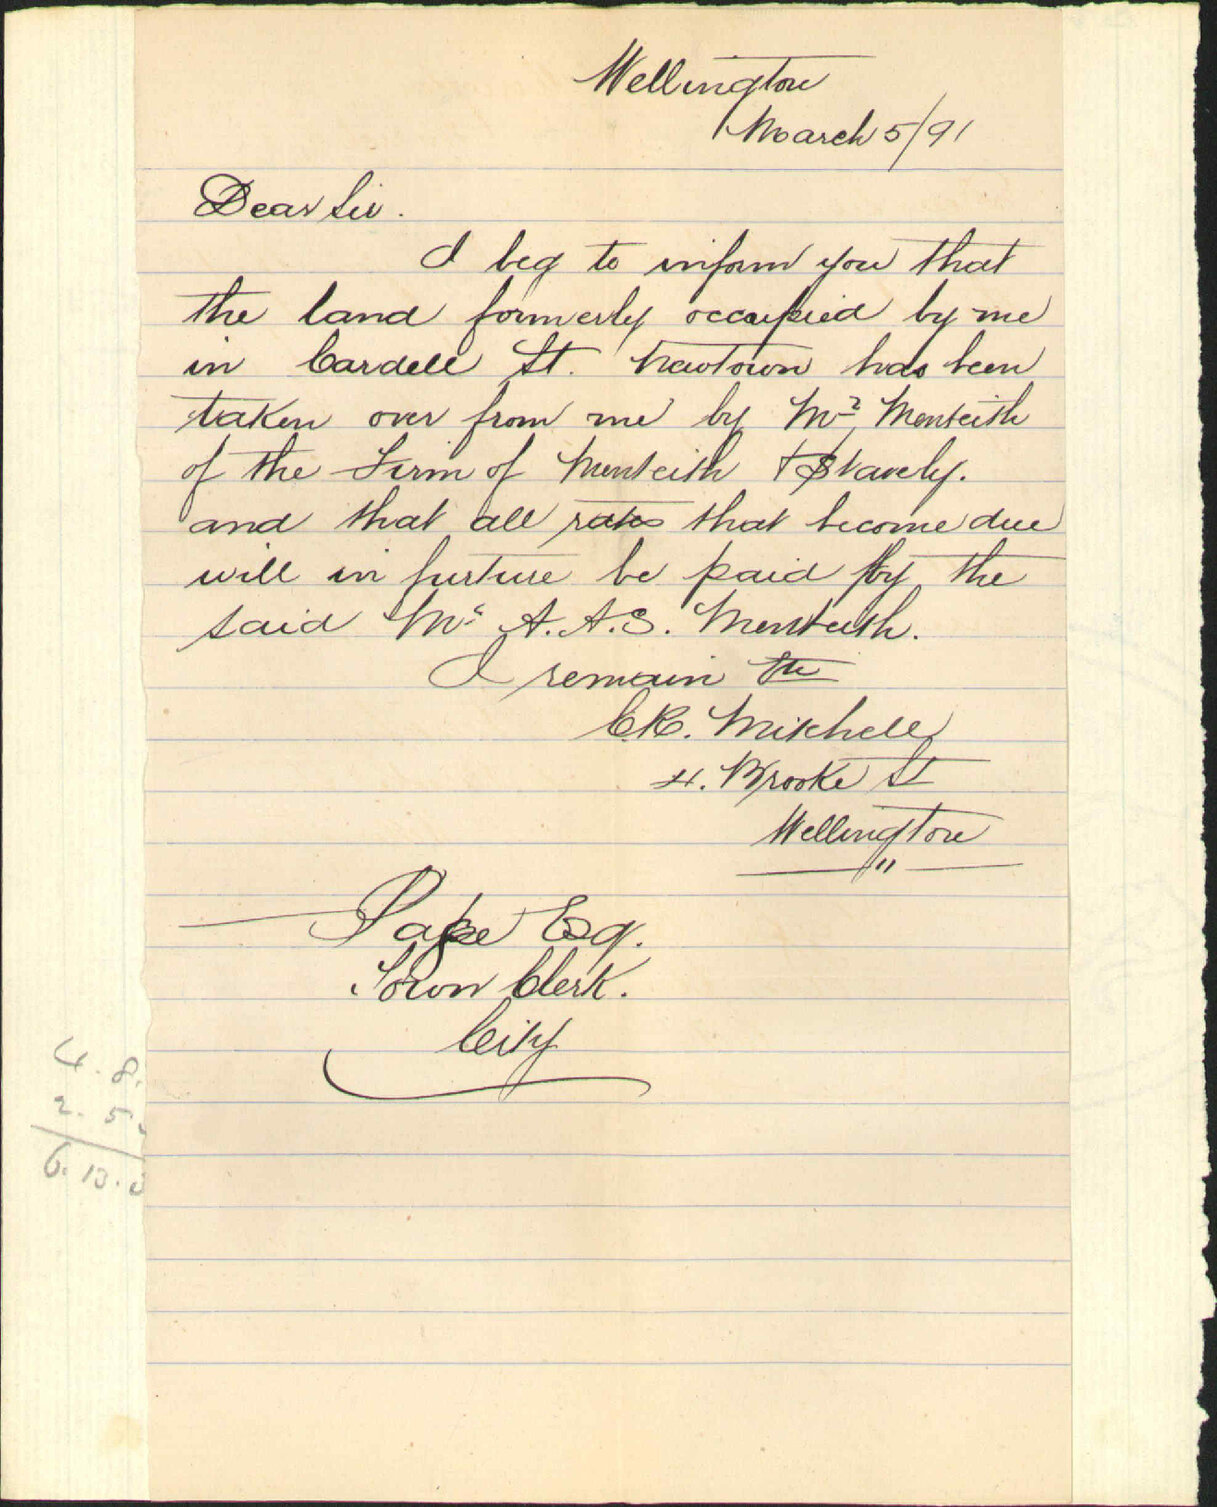 Wellington
March 5/91
Dear Sir.
I beg to inform you that
the land formerly occupied by me
in Cardell St. Newtown has been
taken over from me by Mr Menteith
of the Firm of Menteith & Stavely.
and that all rates that become due
will in furture be paid by the
said Mr A. A. S. Menteith.
I remain &c
C.R. Mitchell
4. Brooke St
Wellington
"
Page Esq.
Town Clerk.
City
4. 8.
2. 5
6. 13.